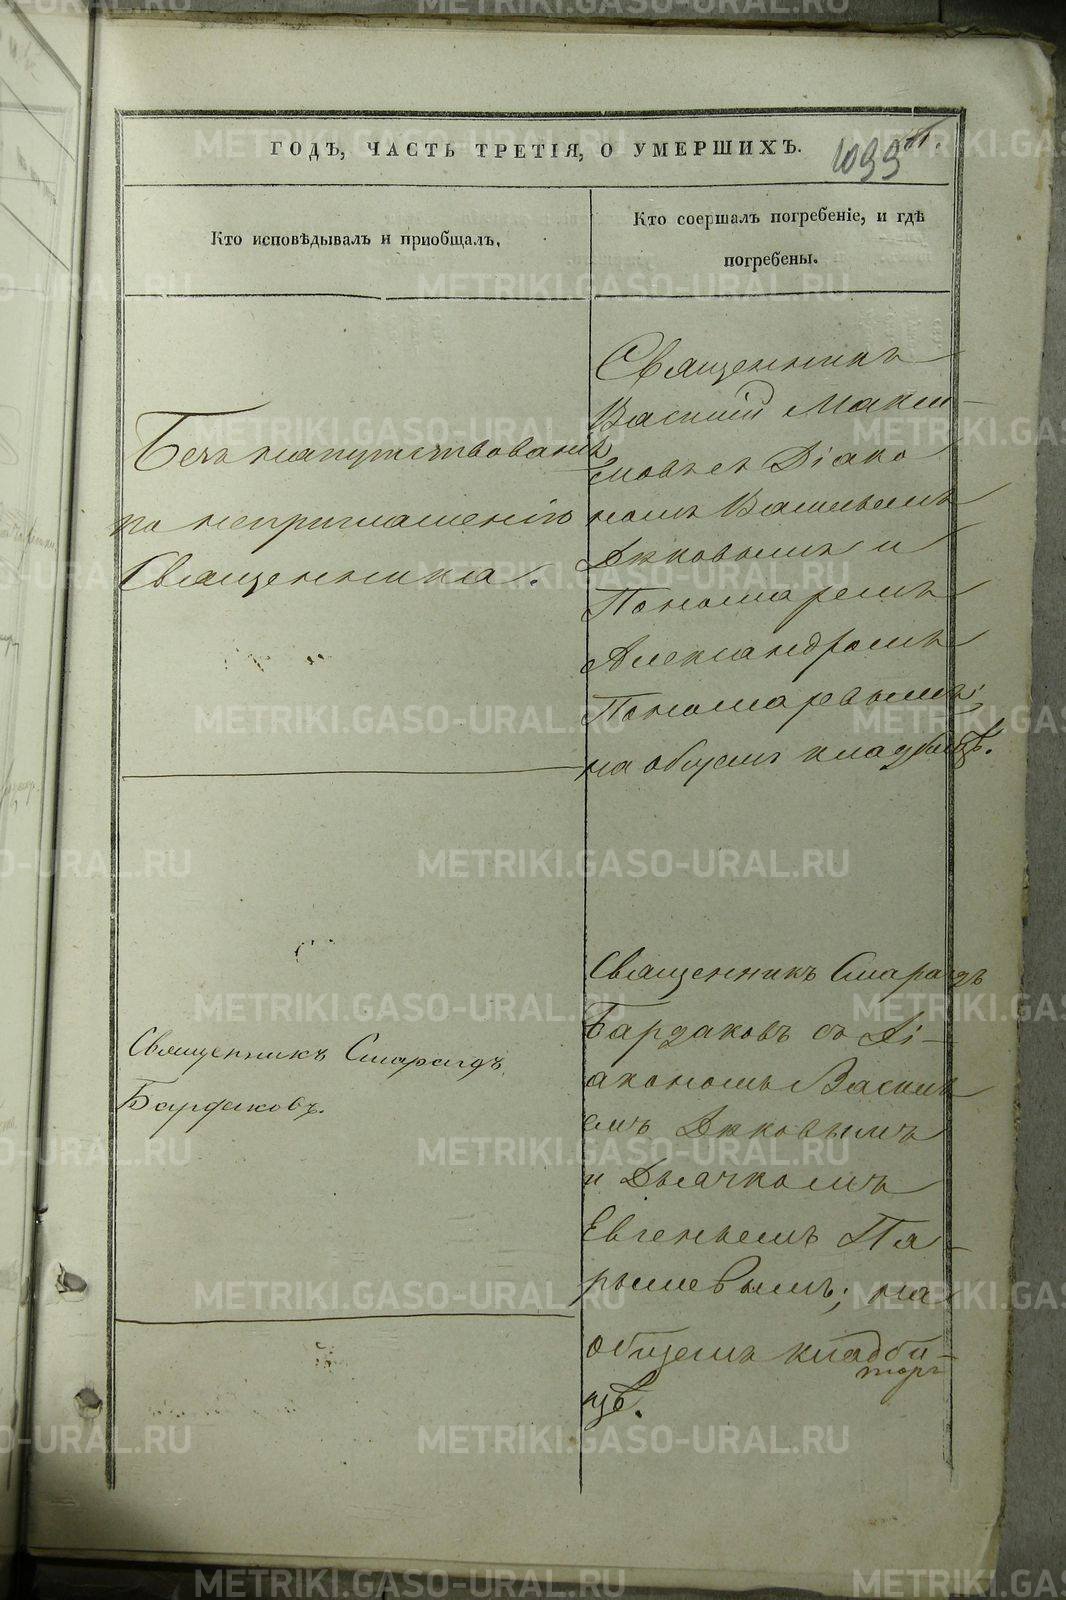 ГОДЪ, ЧАСТЬ ТРЕТІЯ, О УМЕРШИХЪ.
1099 об.
Кто исповѣдывалъ и приобщалъ.
Кто соершалъ погребеніе, и гдѣ
погребены.
Безъ напутствованія
по неприглашенію
Священника.
Священникъ
Василій Макси-
мовъ съ Діако
номъ Васильемъ
Дяковымъ и
Пономаремъ
Александромъ
Пономаревымъ;
на общемъ кладбищѣ.
Священникъ Смарагдъ
Бардаковъ.
Священникъ Смарагдъ
Бардаковъ съ Ді-
акономъ Василь
емъ Дяковымъ
и Дьячкомъ
Евгеньемъ Па-
рышевымъ; на
общемъ кладби-
щѣ.
METRIKI.GASO-URAL.RU